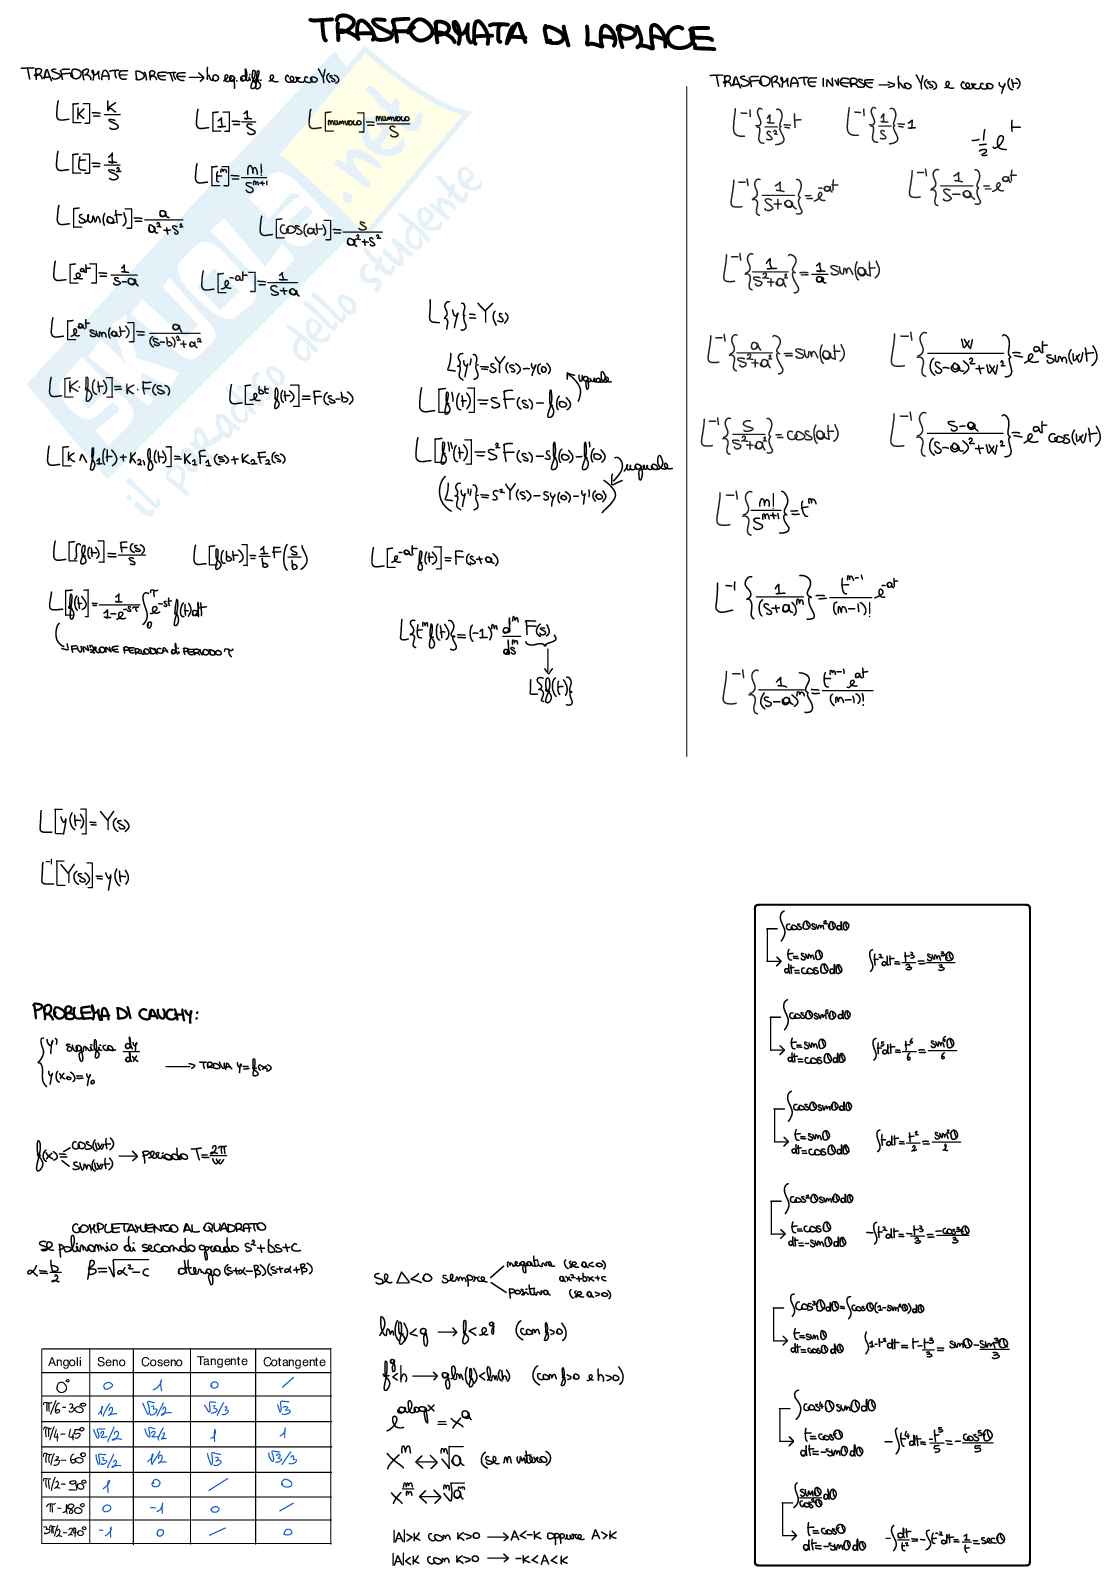 TRASFORMATA DI LAPLACE
TRASFORMATE DIRETTE → ho eq. diff e cerco Y(s)
L[k]=k/s
L[1]=1/s
L[numero]=numero/s
L[t]=1/s²
L[tⁿ]=n!/sⁿ⁺¹
L[sen(at)]=a/(a²+s²)
L[cos(at)]=s/(a²+s²)
L[eᵃᵗ]=1/(s-a)
L[e⁻ᵃᵗ]=1/(s+a)
L[eᵃᵗ sen(at)]=a/((s-b)²+a²)
L[k·f(t)]=k·F(s)
L[eᵇᵗ f(t)]=F(s-b)
L[k₁f₁(t)+k₂f(t)]=k₁F₁(s)+k₂F₂(s)
L{y}=Y(s)
L{y'}=sY(s)-y(0)
uguale
L[f'(t)]=sF(s)-f(0)
L[f''(t)]=s²F(s)-sf(0)-f'(0)
uguale
(L{y''}=s²Y(s)-sy(0)-y'(0))
L[∫f(t)]=F(s)/s
L[f(bt)]=1/b F(s/b)
L[e⁻ᵃᵗf(t)]=F(s+a)
L[f(t)]=1/(1-e^(-sτ)) ∫₀^τ e^(-st) f(t)dt
↳ FUNZIONE PERIODICA di PERIODO τ
L{tⁿf(t)}=(-1)ⁿ dⁿ/dsⁿ F(s)
L{f(t)}
TRASFORMATE INVERSE → ho Y(s) e cerco y(t)
L⁻¹{1/s²}=t
L⁻¹{1/s}=1
-1/2 e^t
L⁻¹{1/(s+a)}=e^(-at)
L⁻¹{1/(s-a)}=e^(at)
L⁻¹{1/(s²+a²)}=1/a sin(at)
L⁻¹{a/(s²+a²)}=sin(at)
L⁻¹{w/((s-a)²+w²)}=e^(at) sin(wt)
L⁻¹{s/(s²+a²)}=cos(at)
L⁻¹{(s-a)/((s-a)²+w²)}=e^(at) cos(wt)
L⁻¹{n!/sⁿ⁺¹}=tⁿ
L⁻¹{1/(s+a)ⁿ}=tⁿ⁻¹/(n-1)! e^(-at)
L⁻¹{1/(s-a)ⁿ}=tⁿ⁻¹e^(at)/(n-1)!
L[y(t)]=Y(s)
L⁻¹[Y(s)]=y(t)
PROBLEMA DI CAUCHY:
{y' significa dy/dx
y(x₀)=y₀
→ TROVA y=f(x)
f(x)= cos(wt)
sin(wt) → periodo T=2π/w
COMPLETAMENTO AL QUADRATO
se polinomio di secondo grado s²+bs+c
α=b/2 β=√(α²-c) ottengo (s+α-β)(s+α+β)
Angoli Seno Coseno Tangente Cotangente
0° 0 1 0 /
π/6-30° 1/2 √3/2 √3/3 √3
π/4-45° √2/2 √2/2 1 1
π/3-60° √3/2 1/2 √3 √3/3
π/2-90° 1 0 / 0
π-180° 0 -1 0 /
3π/2-270° -1 0 / 0
se Δ<0 sempre
negativa (se a<0)
ax²+bx+c
positiva (se a>0)
ln(f)<g → f<e^g (con f>0)
f^g<h → g ln(f)<ln(h) (con f>0 e h>0)
e^(alogx)=x^a
xⁿ ↔ ⁿ√a (se n intero)
x^(m/n) ↔ ⁿ√aᵐ
|A|>k con k>0 → A<-k oppure A>k
|A|<k con k>0 → -k<A<k
∫cosθsin²θdθ
t=sinθ
dt=cosθdθ
∫t²dt=t³/3=sin³θ/3
∫cosθsin⁵θdθ
t=sinθ
dt=cosθdθ
∫t⁵dt=t⁶/6=sin⁶θ/6
∫cosθsinθdθ
t=sinθ
dt=cosθdθ
∫tdt=t²/2=sin²θ/2
∫cos²θsinθdθ
t=cosθ
dt=-sinθdθ
-∫t²dt=-t³/3=-cos³θ/3
∫cos³θdθ=∫cosθ(1-sin²θ)dθ
t=sinθ
dt=cosθdθ
∫1-t²dt=t-t³/3=sinθ-sin³θ/3
∫cos⁴θsinθdθ
t=cosθ
dt=-sinθdθ
-∫t⁴dt=-t⁵/5=-cos⁵θ/5
∫sinθ/cos²θ dθ
t=cosθ
dt=-sinθdθ
-∫dt/t²=-∫t⁻²dt=1/t=secθ
SKUOLA.net
il paradiso dello studente